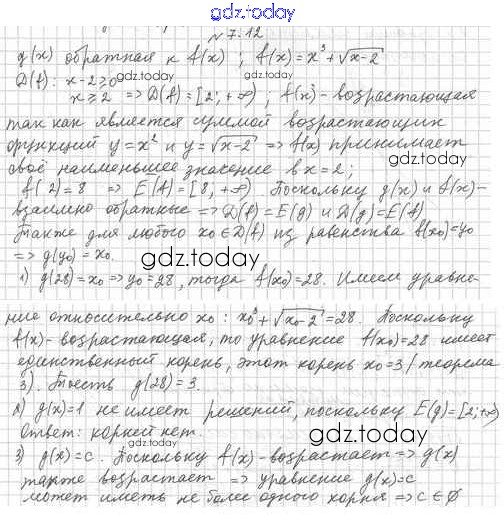 gdz.today
N 7.12
g(x) обратная к f(x) ; f(x)=x³+√x-2
D(f): x-2≥0
gdz.today
x≥2 => D(f)=[2;+∞) ; f(x)-возрастающая
так как является суммой возрастающих
функций y=x² и y=√x-2 => f(x) принимает
своё наименьшее значение в x=2;
gdz.today
f(2)=8 => E(f)=[8;+∞). Поскольку g(x) и f(x)-
взаимно обратные => D(f)=E(g) и D(g)=E(f).
gdz.today
Также для любого x₀∈D(f) из равенства f(x₀)=y₀
=> g(y₀)=x₀.
gdz.today
1) g(28)=x₀ => y₀=28, тогда f(x₀)=28. Имеем уравне-
ние относительно x₀: x₀³+√x₀-2=28. Поскольку
f(x)-возрастающая, то уравнение f(x₀)=28 имеет
единственный корень, этот корень x₀=3 (теорема
3). Тоесть g(28)=3.
2) g(x)=1 не имеет решений, поскольку E(g)=[2;+∞)
Ответ: корней нет.
gdz.today
3) g(x)=c. Поскольку f(x)-возрастает => g(x)
также возрастает => уравнение g(x)=c
может иметь не более одного корня => c∈∅